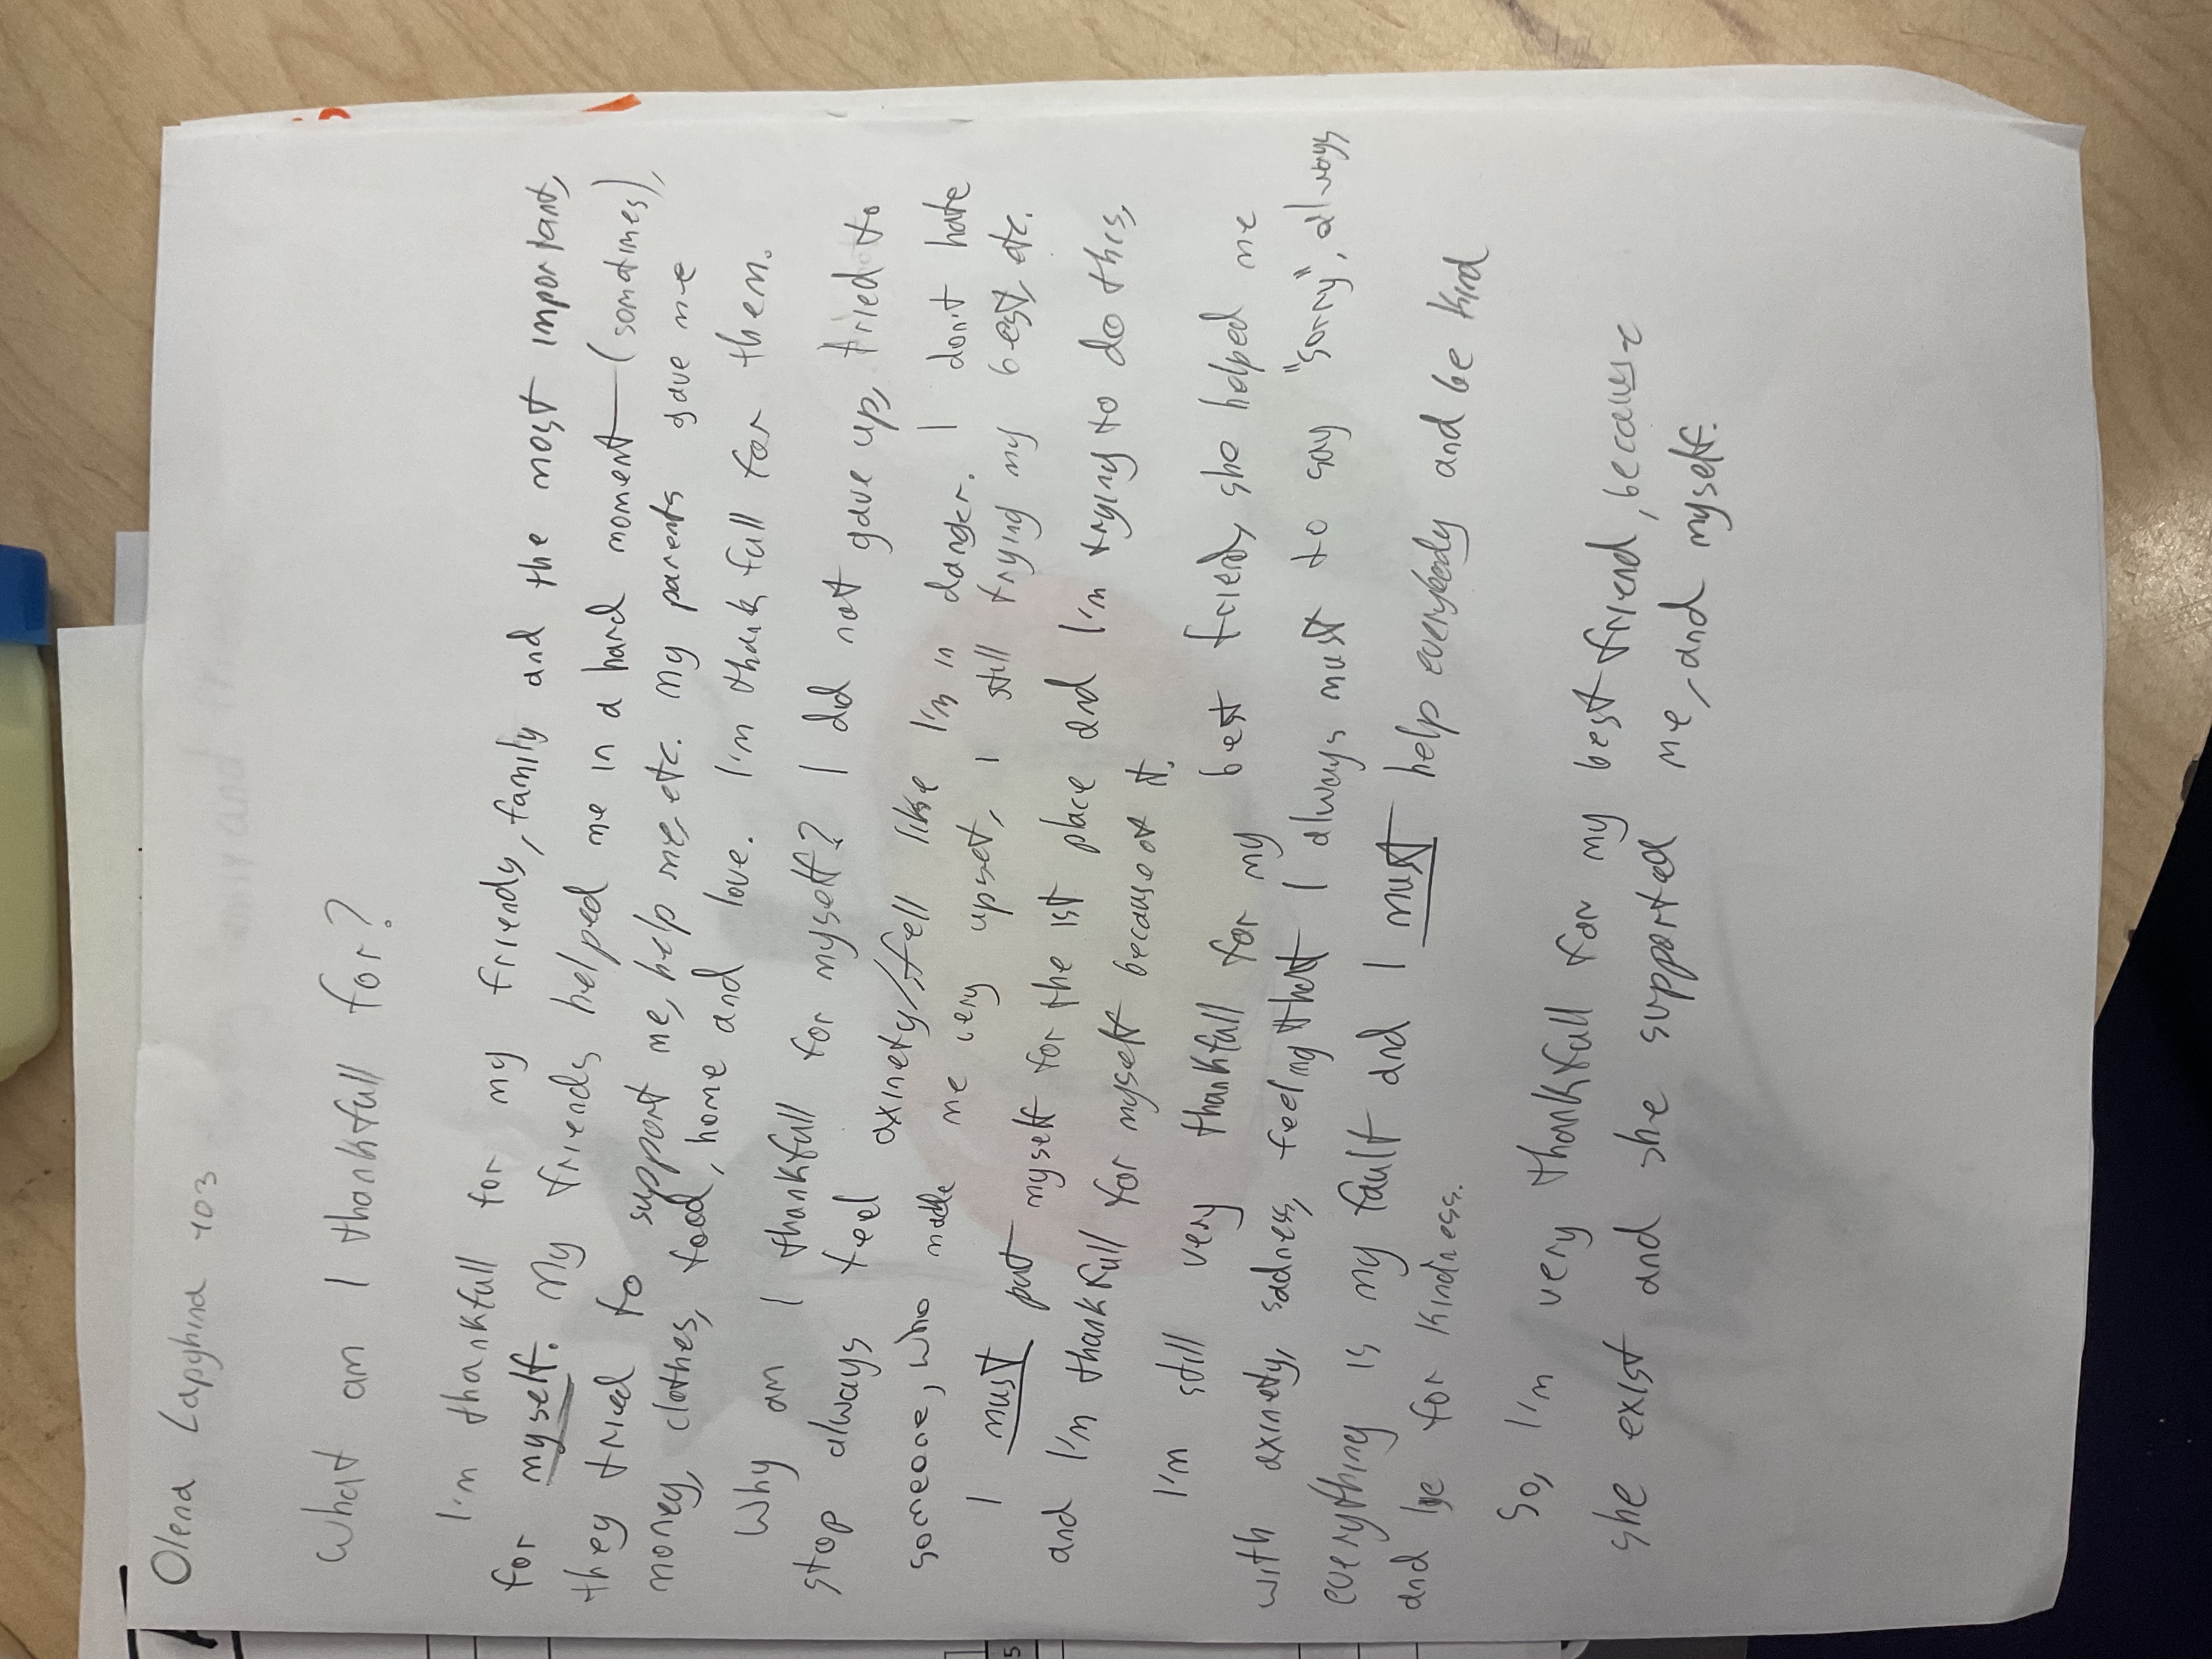 Olena Lapyhina 403
What am I thankfull for?
I'm thankfull for my friends, family and the most important,
for myself. My friends helped me in a hard moment (somtimes),
they tried to support me, help me, etc. My parents gave me
money, clothes, food, home and love. I'm thankfull for them.
Why am I thankfull for myself? I did not gave up, tried to
stop always feel axinety, fell like I'm in danger. I don't hate
someone, who made me very upset, I still trying my best, etc.
I must put myself for the 1st place and I'm trying to do this,
and I'm thankfull for myself because of it.
I'm still very thankfull for my best friend, she helped me
with axinety, sadness, feeling that I always must to say "sorry", always
everything is my fault and I must help everybody and be kind
and be for kindness.
So, I'm very thankfull for my best friend, because
she exist and she supported me, and myself.
5